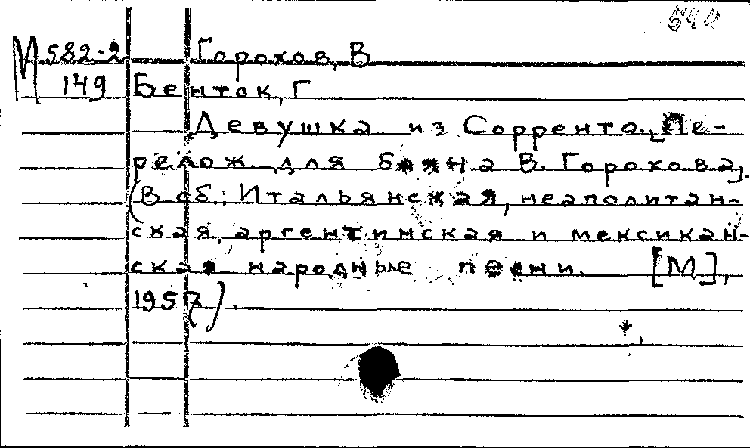 М 582-2 Горохов, В
149 Бенток, Г
Девушка из Сорренто. [Пе-
релож. для баяна В. Горохова].
(В сб: Итальянская, неаполитан-
ская, аргентинская и мексикан-
ская народные песни. [М],
1957).